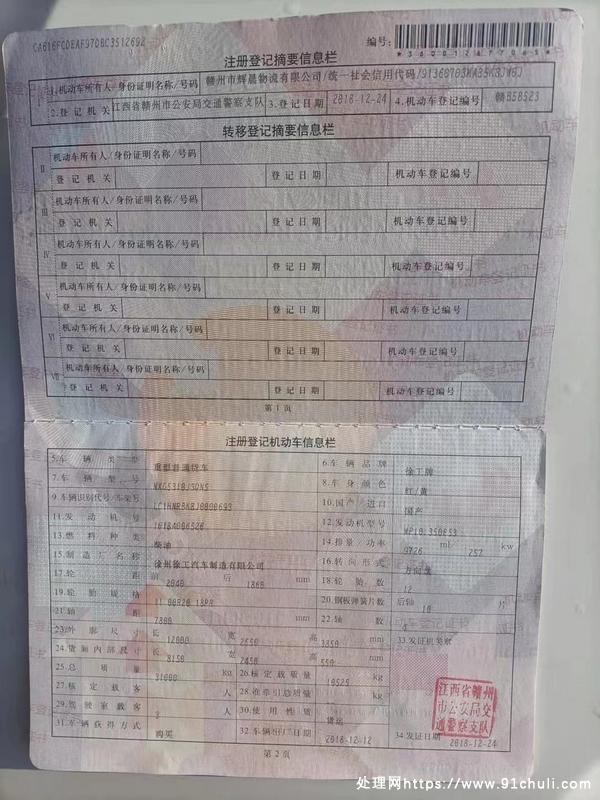 CA616FCDEAF970BC3512692
编号:
*360012677065*
注册登记摘要信息栏
I 1.机动车所有人/身份证明名称/号码 赣州市辉晟物流有限公司/统一社会信用代码/91360703MA35K8JW8J
2.登记机关 江西省赣州市公安局交通警察支队 3.登记日期 2018-12-24 4.机动车登记编号 赣B5B523
转移登记摘要信息栏
II 机动车所有人/身份证明名称/号码
登记机关 登记日期 机动车登记编号
III 机动车所有人/身份证明名称/号码
登记机关 登记日期 机动车登记编号
IV 机动车所有人/身份证明名称/号码
登记机关 登记日期 机动车登记编号
V 机动车所有人/身份证明名称/号码
登记机关 登记日期 机动车登记编号
VI 机动车所有人/身份证明名称/号码
登记机关 登记日期 机动车登记编号
VII 机动车所有人/身份证明名称/号码
登记机关 登记日期 机动车登记编号
第1页
注册登记机动车信息栏
5.车辆类型 重型普通货车 6.车辆品牌 徐工牌
7.车辆型号 8.车身颜色 红/黄
9.车辆识别代号/车架号 10.国产/进口 国产
11.发动机号 1618A006526 12.发动机型号 WP10.350E53
13.燃料种类 柴油 14.排量/功率 9726 ml/ 257 kw
15.制造厂名称 徐州徐工汽车制造有限公司 16.转向形式 方向盘
17.轮距 前 2040 后 1860 mm 18.轮胎数 12
19.轮胎规格 11.00R20 18PR 20.钢板弹簧片数 后轴 10 片
21.轴距 mm 22.轴数 4
23.外廓尺寸 长 12000 宽 2550 高 mm 33.发证机关章
24.货厢内部尺寸 长 8150 宽 2450 高 550 mm
25.总质量 31000 kg 26.核定载质量 kg
27.核定载客 人 28.准牵引总质量 kg
29.驾驶室载客 人 30.使用性质 货运
31.车辆获得方式 购买 32.车辆出厂日期 2018-12-12 34.发证日期 2018-12-24
江西省赣州
市公安局交
通警察支队
第2页
处理网https://www.91chuli.com